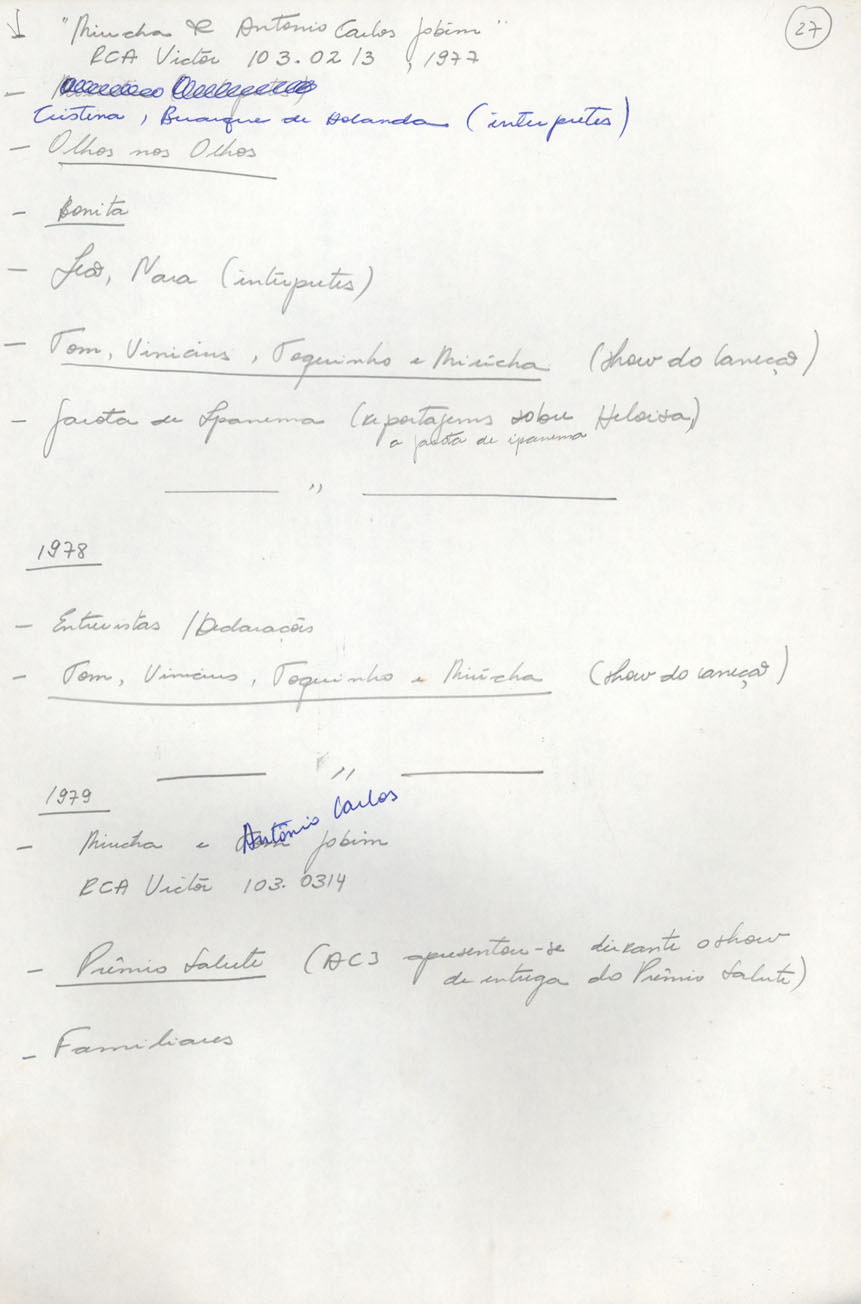 27
"Miucha & Antonio Carlos Jobim"
RCA Victor 103.0213, 1977
Cristina, Buarque de Holanda (interpretes)
- Olhos nos Olhos
- Bonita
- Leão, Nara (intérpretes)
- Tom, Vinícius, Toquinho e Miúcha (show do Canecão)
- Garota de Ipanema (reportagens sobre Heloisa)
a garota de ipanema
"
1978
- Entrevistas / Declarações
- Tom, Vinicius, Toquinho e Miúcha (show do canecão)
"
1979
- Miucha e Antônio Carlos Jobim
RCA Victor 103.0314
- Prêmio Salute (ACJ apresentou-se durante o show
de entrega do Prêmio Salute)
- Familiares